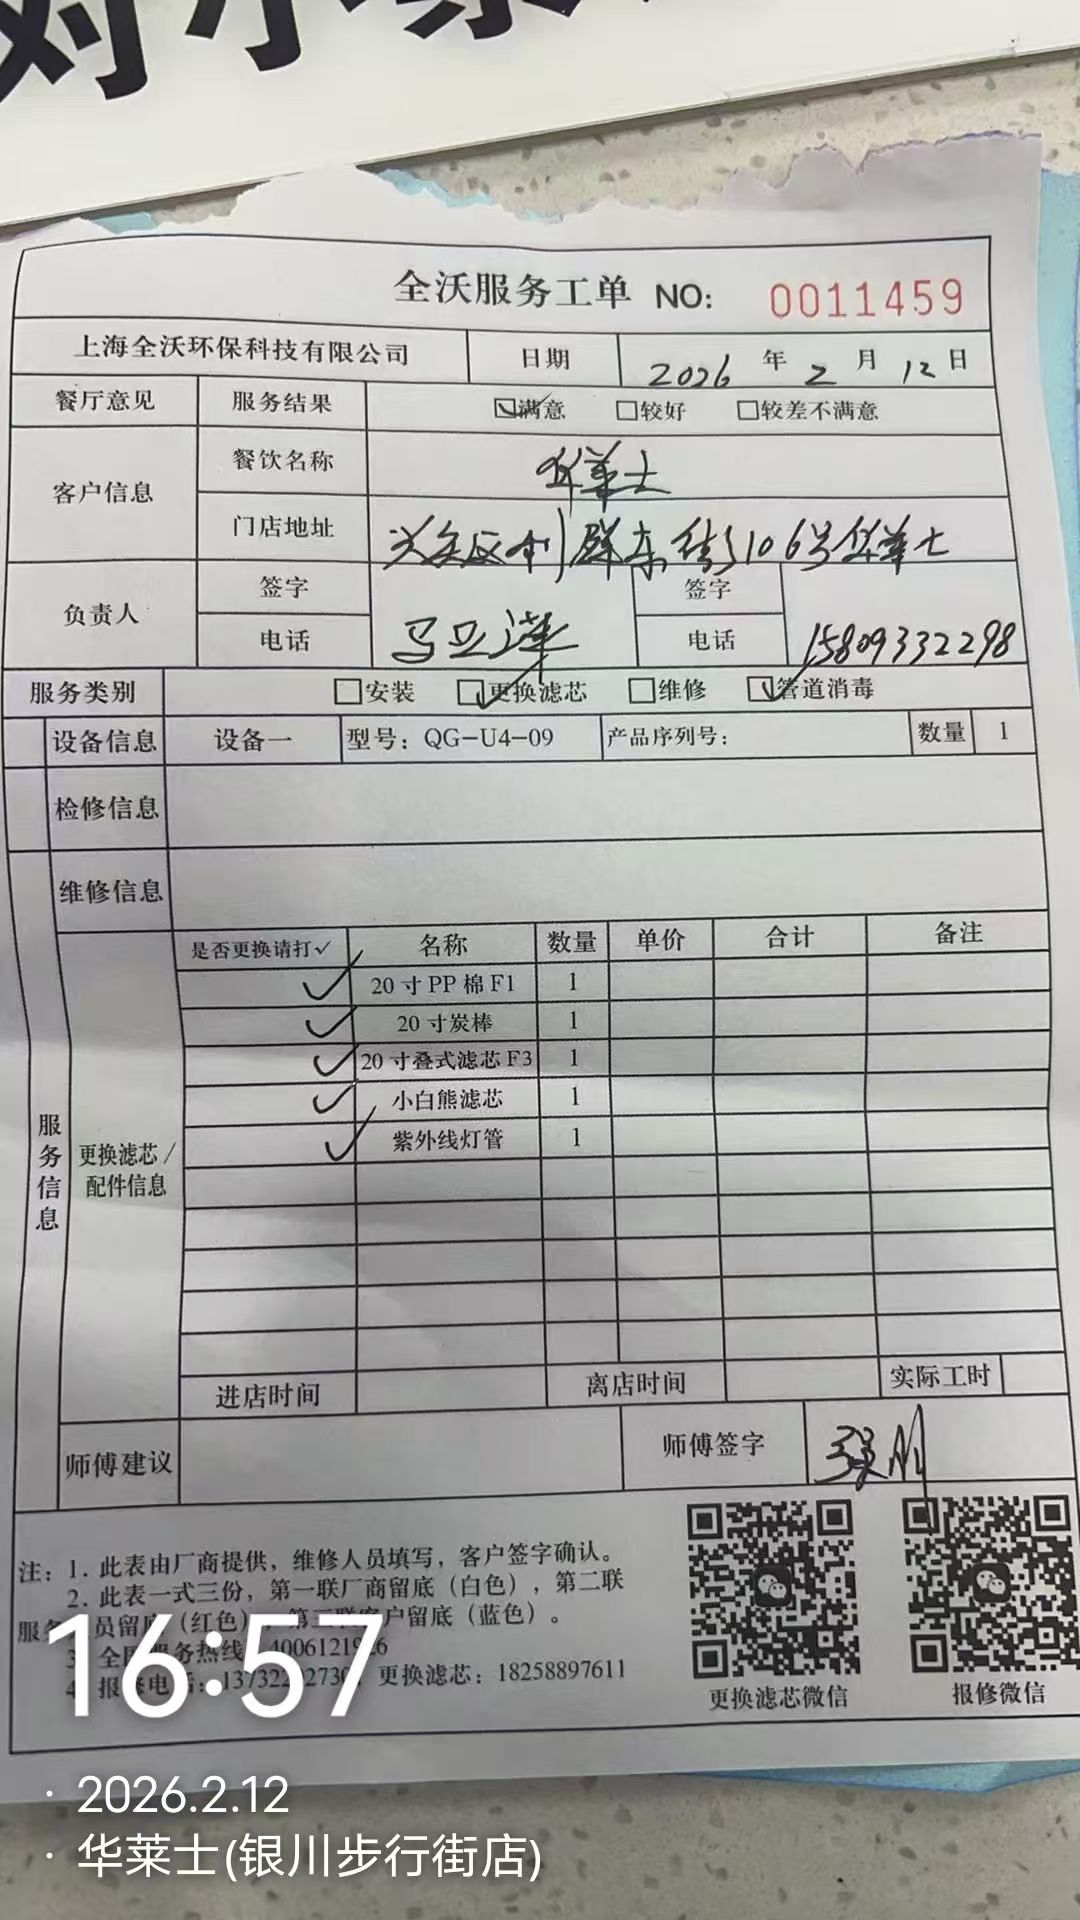 全沃服务工单 NO: 0011459
上海全沃环保科技有限公司 日期 2026 年 2 月 12 日
餐厅意见 服务结果 ☑满意 □较好 □较差不满意
客户信息 餐饮名称 华莱士
门店地址 兴庆区利群东街106号华莱士
负责人 签字 签字
电话 马 电话 15809332298
服务类别 □安装 ☑更换滤芯 □维修 ☑管道消毒
设备信息 设备一 型号：QG-U4-09 产品序列号： 数量 1
检修信息
维修信息
服务信息
更换滤芯/
配件信息
是否更换请打✓ 名称 数量 单价 合计 备注
✓ 20寸PP棉F1 1
✓ 20寸炭棒 1
✓ 20寸叠式滤芯F3 1
✓ 小白熊滤芯 1
✓ 紫外线灯管 1
进店时间 离店时间 实际工时
师傅建议 师傅签字
注：1. 此表由厂商提供，维修人员填写，客户签字确认。
2. 此表一式三份，第一联厂商留底（白色），第二联
服务 员留底（红色） 第三联客户留底（蓝色）。
全国服务热线 4006121
报修电话： 更换滤芯：18258897611
更换滤芯微信 报修微信
16:57
· 2026.2.12
· 华莱士(银川步行街店)